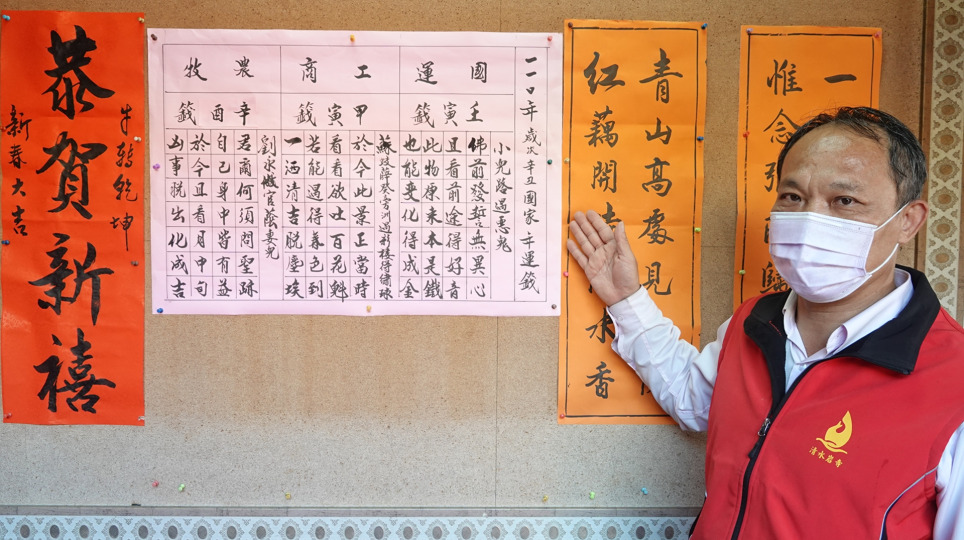 恭賀新禧
牛轉乾坤
新春大吉
一一0年歲次辛丑國家年運籤
國運
壬寅籤
小兒路遇惡鬼
佛前發誓無異心
且看前途得好音
此物原來本是鐵
也能變化得成金
工商
甲寅籤
過彩樓得繡球
於今此景正當時
看看欲吐百花魁
若能遇得春色到
一洒清吉脫塵埃
農牧
辛酉籤
劉永做官蔭妻兒
君爾何須問聖跡
自己身中皆有益
於今且看月中旬
凶事脫出化成吉
青山高處見
紅藕開香
一
惟念
清水岩寺